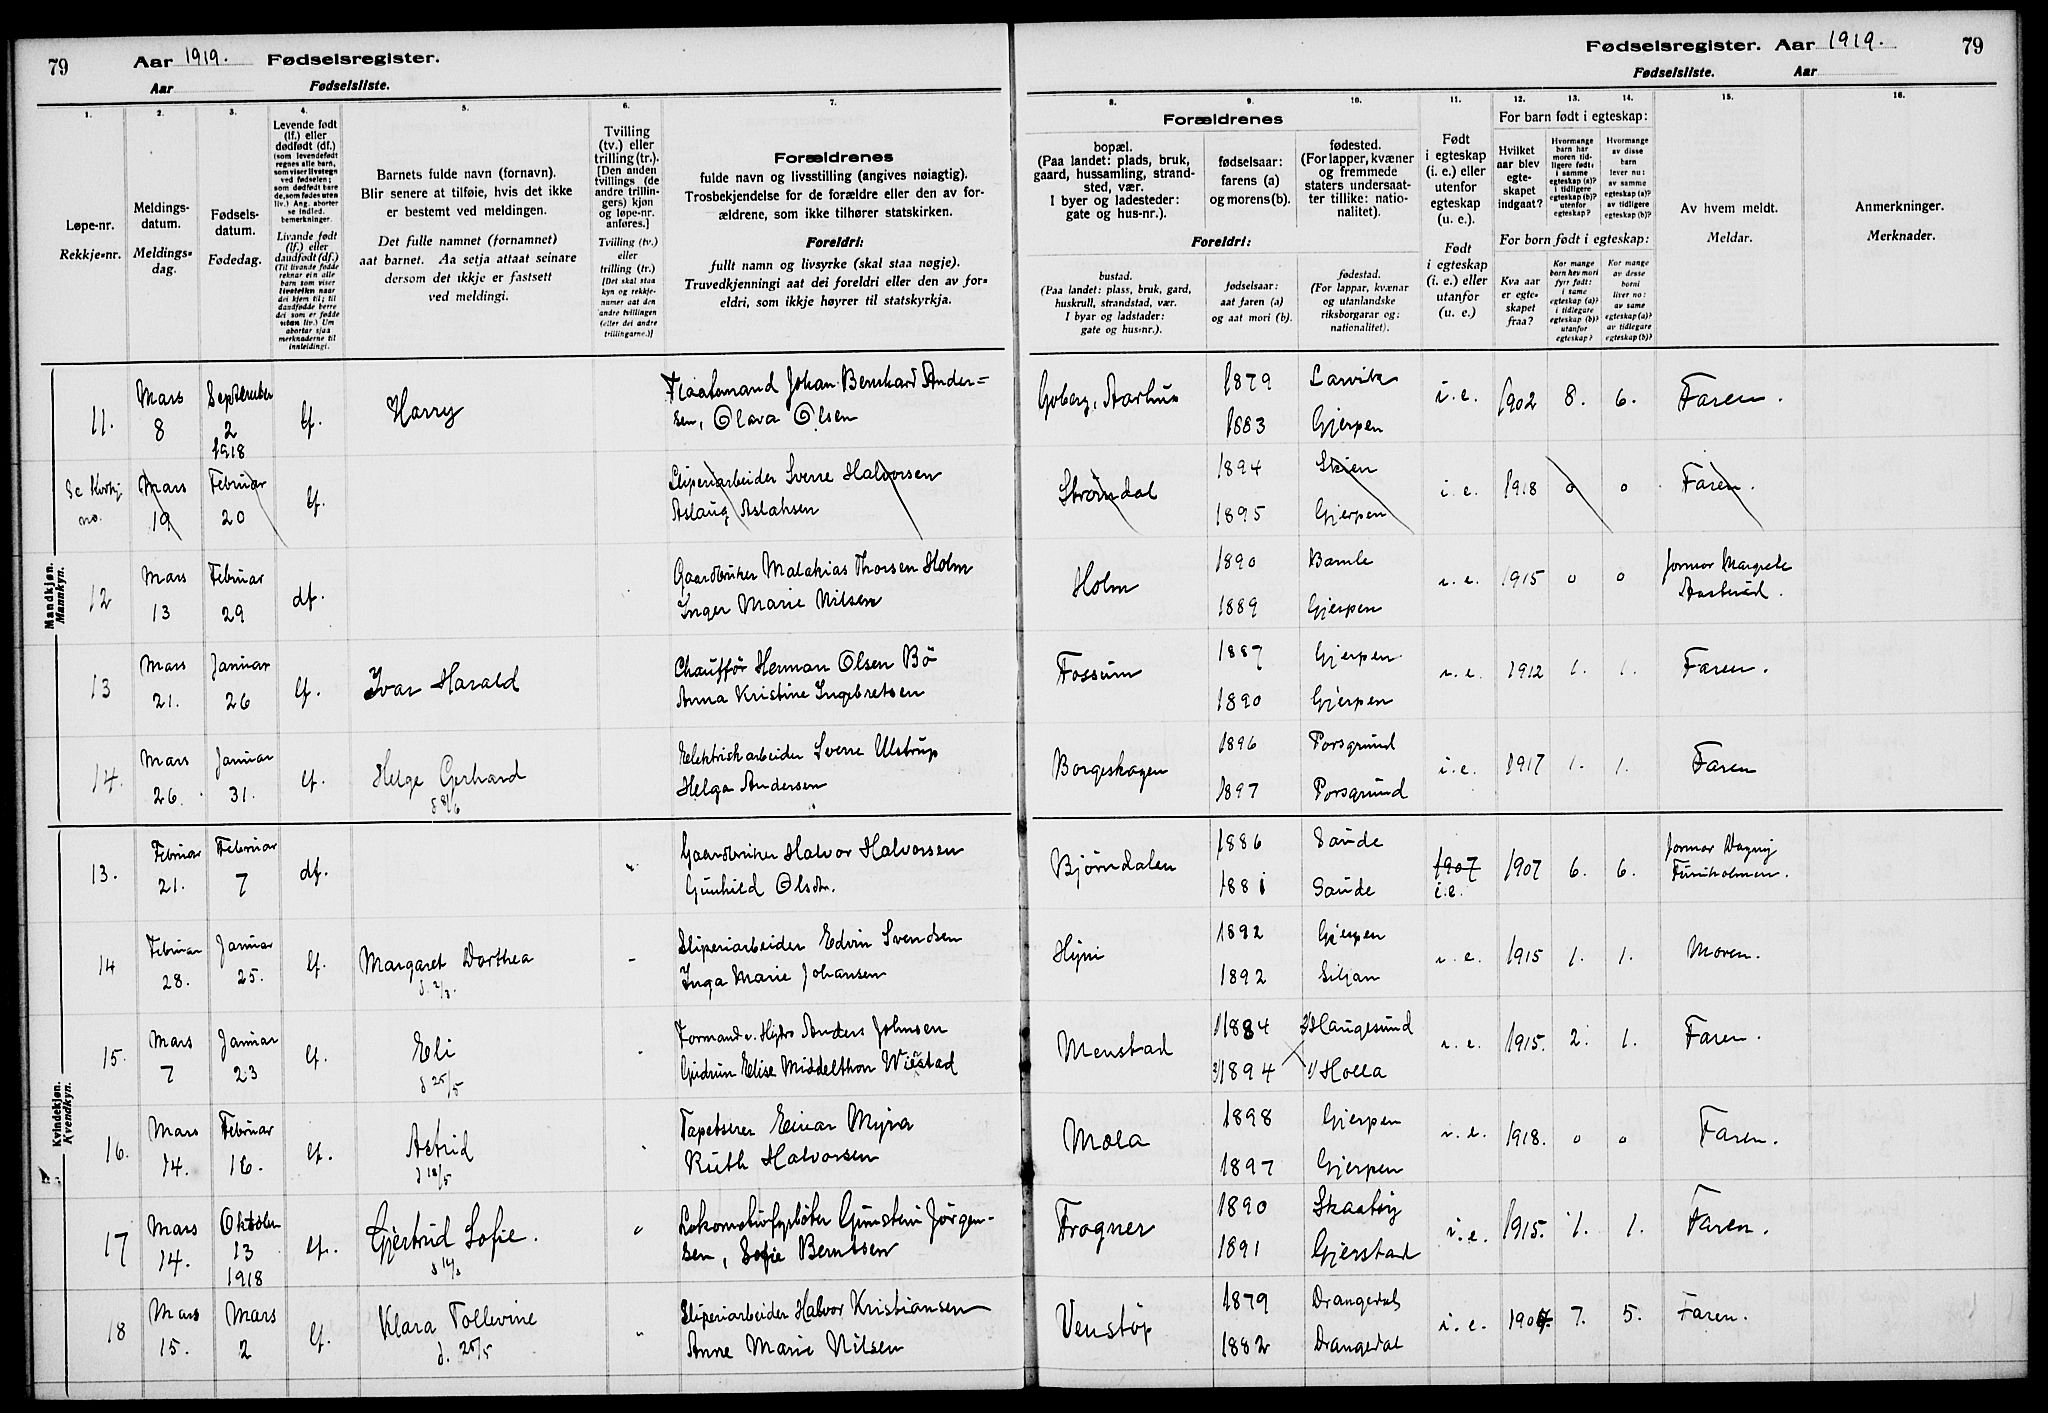 79
Aar 1919. Fødselsregister.
Aar Fødselsliste.
Fødselsregister. Aar 1919.
79
Fødselsliste. Aar
1.
Løpe-nr.
Rekkje-nr.
2.
Meldings-
datum.
Meldings-
dag.
3.
Fødsels-
datum.
Fødedag.
4.
Levende født
(lf.) eller
dødfødt (df.)
(som levendefødt
regnes alle barn,
som viser livstegn
ved fødselen;
som dødfødt bare
de, som fødes uten
liv.) Ang. aborter
se indled.
bemerkninger.
Livande født
(lf.) eller
daudfødt (df.)
(Til livande fødde
reknar ein alle
barn som viser
livsteikn naar
dei kjem til; til
daudfødde berre
dei som er fødde
utan liv.) Um
abortar sjaa
merknaderne til
innleidingi.
5.
Barnets fulde navn (fornavn).
Blir senere at tilføie, hvis det ikke
er bestemt ved meldingen.
Det fulle namnet (fornamnet)
aat barnet. Aa setja attaat seinare
dersom det ikkje er fastsett
ved meldingi.
6.
Tvilling
(tv.) eller
trilling (tr.).
[Den anden
tvillings (de
andre trillin-
gers) kjøn
og løpe-nr.
anføres.]
Tvilling (tv.)
eller
trilling (tr.)
[Det skal staa
kyn og rekkje-
numer aat den
andre tvillingen
(eller dei andre
trillingarne.)]
7.
Forældrenes
fulde navn og livsstilling (angives nøiagtig).
Trosbekjendelse for de forældre eller den av for-
ældrene, som ikke tilhører statskirken.
Foreldri:
fullt namn og livsyrke (skal staa nøgje).
Truvedkjenningi aat dei foreldri eller den av for-
eldri, som ikkje høyrer til statskyrkja.
Forældrenes
8.
bopæl.
(Paa landet: plads, bruk,
gaard, hussamling, strand-
sted, vær.
I byer og ladesteder:
gate og hus-nr.).
9.
fødselsaar:
farens (a)
og morens (b).
10.
fødested.
(For lapper, kvæner
og fremmede
staters undersaat-
ter tillike: natio-
nalitet).
Foreldri:
bustad.
(Paa landet: plass, bruk, gard,
huskrull, strandstad, vær.
I byar og ladstader:
gate og hus-nr.).
fødselsaar:
aat faren (a)
og aat mori (b).
fødestad.
(For lappar, kvænar
og utanlandske
riksborgarar og:
nationalitet).
11.
Født
i egteskap
(i. e.) eller
utenfor
egteskap
(u. e.).
Født
i egteskap
(i. e.) eller
utanfor
(u. e.)
12. 13. 14.
For barn født i egteskap:
Hvilket
aar blev
egte-
skapet
indgaat?
Hvormange
barn har
moren tid-
ligere født:
i samme
egteskap (a)?
i tidligere
egteskap (b)?
utenfor
egteskap?
Hvormange
av disse
barn
lever nu:
av samme
egteskap (a)?
av tidligere
egteskap (b)?
For born født i egteskap:
Kva aar
er egte-
skapet
fraa?
Kor mange
born hev mori
fyrr født:
i same
egteskap (a)?
i tidlegare
egteskap (b)?
utanfor
egteskap?
Kor mange
av desse
borni
liver no:
av same
egteskap (a)?
av tidlegare
egteskap (b)?
15.
Av hvem meldt.
Meldar.
16.
Anmerkninger.
Merknader.
Mandkjøn.
Mannkyn.
11. Mars 8 September 2 1918 lf. Harry Johan Bernhard Ander=
sen, Olava Olsen
Goberg, Aarhus 1879 1883 Larvik Gjerpen i.e. 1902 8. 6. Faren.
no. Mars 19 Februar 20 lf. Sliperiarbeider Sverre Halvorsen
Aslaug Aslaksen
Strømdal 1894 1895 Skien Gjerpen i.e. 1918 0 0 Faren.
12 Mars 13 Februar 29 df. Gaardbruker Malakias Thorsen Holm
Inger Marie Nilsen
Holm 1890 1889 Bamle Gjerpen i.e. 1915 0 0 jormor Margrete
13 Mars 21. Januar 26 lf. Ivar Harald Chauffør Herman Olsen Bö
Anna Kristine Ingebretsen
Fossum 1887 1890 Gjerpen Gjerpen i.e. 1912 1. 1. Faren.
14. Mars 26. Januar 31. lf. Helge Gerhard d 8/6 Elektriskarbeider Sverre Ulstrup
Helga Andersen
Borgeskogen 1896 1897 Porsgrund Porsgrund i.e. 1917 1. 1. Faren
Kvindekjøn.
Kvendkyn.
13. Februar 21. Februar 7 df. Gaardbruker Halvor Halvorsen
Gunhild Olsdtr.
Bjørndalen 1886 1881 Saude Saude 1907 i.e. 1907 6. 6. jormor Dagny
Furuholmen.
14 Februar 28. Januar 25. lf. Margaret Dorthea d. 2/3. Sliperiarbeider Edvin Svendsen
Inga Marie Johansen
Hyni 1892 1892 Gjerpen Siljan i.e. 1915 1. 1. Moren.
15. Mars 7 Januar 23 lf. Eli d 25/5 Formand v. Hydro Anders Johnsen
Gudrun Elise Middelthon Wiestad
Menstad 1884 1894 Haugesund Holla i.e. 1915. 2. 1. Faren.
16. Mars 14. Februar 16. lf. Astrid d 18/5 Tapetserer Einar Myra
Ruth Halvorsen
Mæla 1898 1897 Gjerpen Gjerpen i.e. 1918. 0 0 Faren.
17 Mars 14. Oktober 13 1918 lf. Gjertrud Sofie. Lokomotivfyrbøter Gunstein Jörgen-
sen, Sofie Berntsen
Frogner 1890 1891 Skaatøy Gjerstad i.e. 1915. 1. 1. Faren.
18 Mars 15. Mars 2 lf. Klara Tollevine d. 25/5 Sliperiarbeider Halvor Kristiansen
Anne Marie Nilsen
Venstöp 1879 1882 Drangedal Drangedal i.e. 7. 5. Faren.